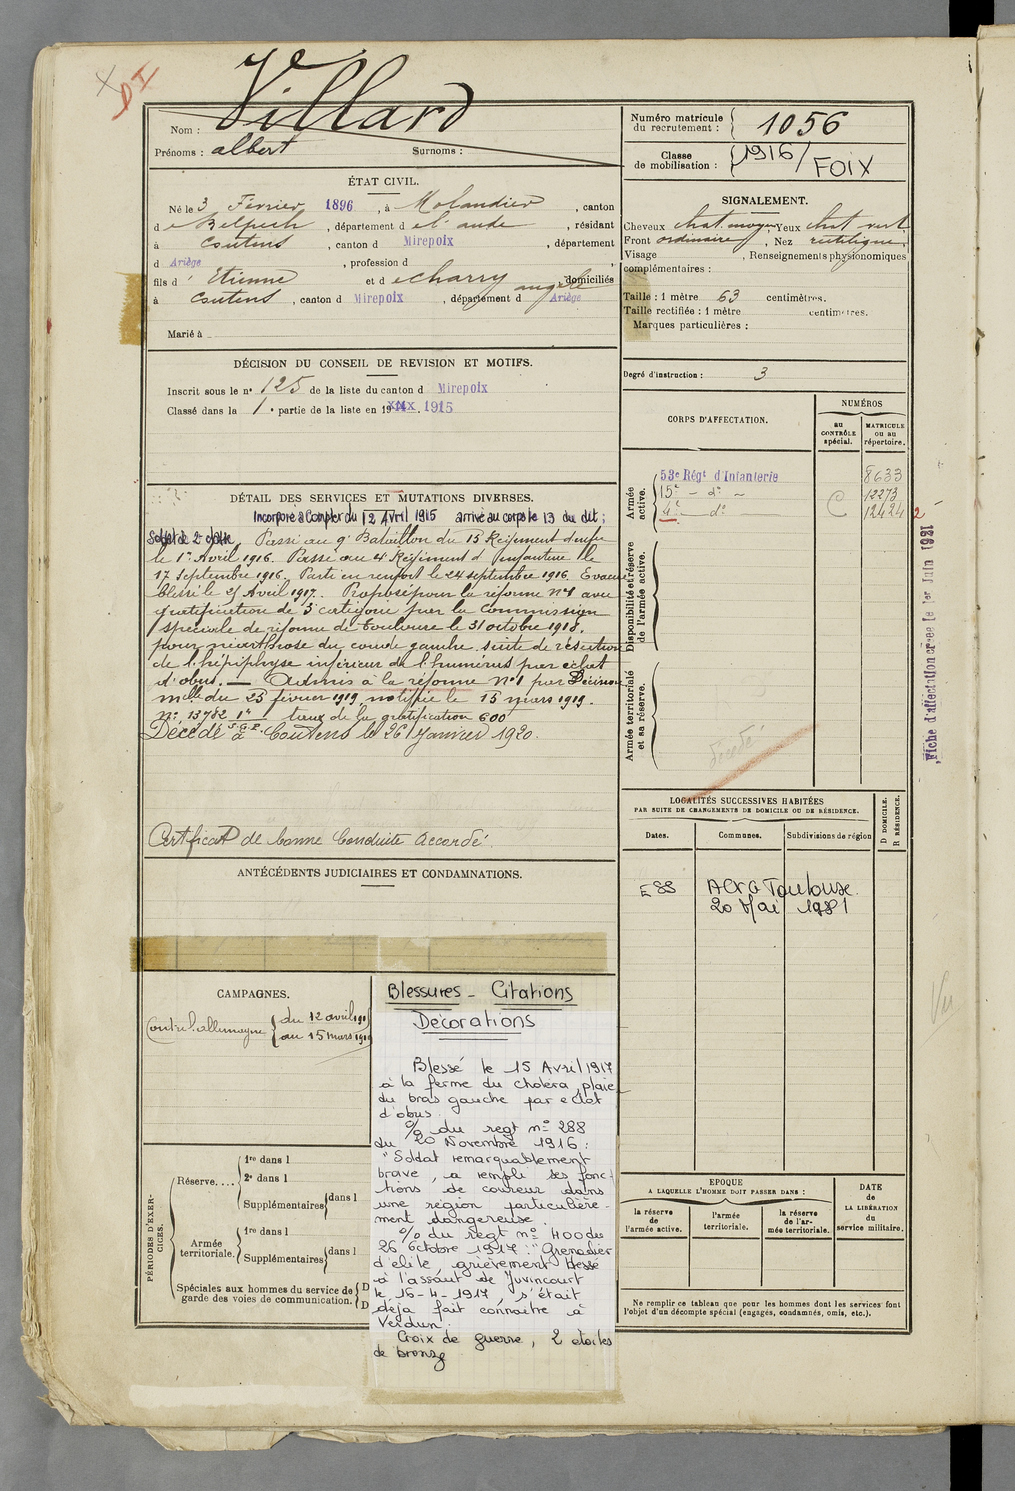 DI
Villard
Nom :
Prénoms : albert Surnoms :
Numéro matricule du recrutement : 1056
Classe de mobilisation : 1916 / FOIX
ÉTAT CIVIL.
Né le 3 Février 1896, à Molandier, canton
de Belpech, département de l'aude, résidant
à Coutens, canton d Mirepoix, département
d Ariège, profession d
fils d' Etienne et de Charry angèle domiciliés
à Coutens, canton d Mirepoix, département d Ariège
Marié à
SIGNALEMENT.
Cheveux chat. moyen Yeux chat vert
Front ordinaire, Nez rectiligne.
Visage , Renseignements physionomiques
complémentaires :
Taille : 1 mètre 63 centimètres.
Taille rectifiée : 1 mètre centimètres.
Marques particulières :
Degré d'instruction : 3
DÉCISION DU CONSEIL DE REVISION ET MOTIFS.
Inscrit sous le n° 125 de la liste du canton d Mirepoix
Classé dans la 1e partie de la liste en 19 . 1915
CORPS D'AFFECTATION.
NUMÉROS
au CONTRÔLE spécial.
MATRICULE ou au répertoire.
Armée active.
53e Régt d'Infanterie 8633
15e - do - 12273
4e - do - 12424 2
Disponibilité et réserve de l'armée active.
Armée territoriale et sa réserve.
décédé
Fiche d'affectation créée le 1er Juin 1921
DÉTAIL DES SERVICES ET MUTATIONS DIVERSES.
Incorporé à compter du 12 Avril 1915 arrivé au corps le 13 du dit ;
Soldat de 2e classe, Passé au 9e Bataillon du 15 Régiment d'infie
le 1er Avril 1916. Passé au 4 Régiment d'Infanterie le
17 Septembre 1916. Parti en renfort le 24 septembre 1916. Evacué
blessé le 25 Avril 1917. Proposé pour la réforme n°1 avec
gratification de 5e catégorie par la Commission
spéciale de réforme de Toulouse le 31 octobre 1918.
pour néarthrose du coude gauche suite de résection
de l'hépiphyse inférieur de l'humérus par éclat
d'obus. — Admis à la réforme n°1 par Décision
mlle du 25 février 1919 notifiée le 15 mars 1919.
n°: 13782 1° S.G.P. taux de la gratification 600
Décédé à Coutens le 26 Janvier 1920.
Certificat de bonne Conduite Accordé
ANTÉCÉDENTS JUDICIAIRES ET CONDAMNATIONS.
LOCALITÉS SUCCESSIVES HABITÉES
PAR SUITE DE CHANGEMENTS DE DOMICILE OU DE RÉSIDENCE.
D DOMICILE.
R RÉSIDENCE.
Dates. Communes. Subdivisions de région
E 83 ACVG Toulouse.
20 Mai 1981
CAMPAGNES.
Contre l'allemagne du 12 avril 1915
au 15 mars 1919
Blessures - Citations
Décorations
Blessé le 15 Avril 1917
à la ferme du choléra, plaie
du bras gauche par éclat
d'obus.
% du regt n° 288
du 20 Novembre 1916 :
"Soldat remarquablement
brave, a rempli ses fonc-
tions de coureur dans
une région particulière-
ment dangereuse.
% du regt n° 400 du
26 Octobre 1917 : "Grenadier
d'élite, grièvement blessé
à l'assaut de Juvincourt
le 16-4-1917, s'était
déjà fait connaître à
Verdun.
Croix de guerre, 2 étoiles
de bronze
PÉRIODES D'EXERCICES.
Réserve.... 1re dans l
2e dans l
Supplémentaires dans l
Armée territoriale. 1re dans l
Supplémentaires dans l
Spéciales aux hommes du service de garde des voies de communication. D
D
EPOQUE
A LAQUELLE L'HOMME DOIT PASSER DANS :
la réserve de l'armée active.
l'armée territoriale.
la réserve de l'armée territoriale.
DATE de LA LIBÉRATION du service militaire.
Ne remplir ce tableau que pour les hommes dont les services font
l'objet d'un décompte spécial (engagés, condamnés, omis, etc.).
Vu